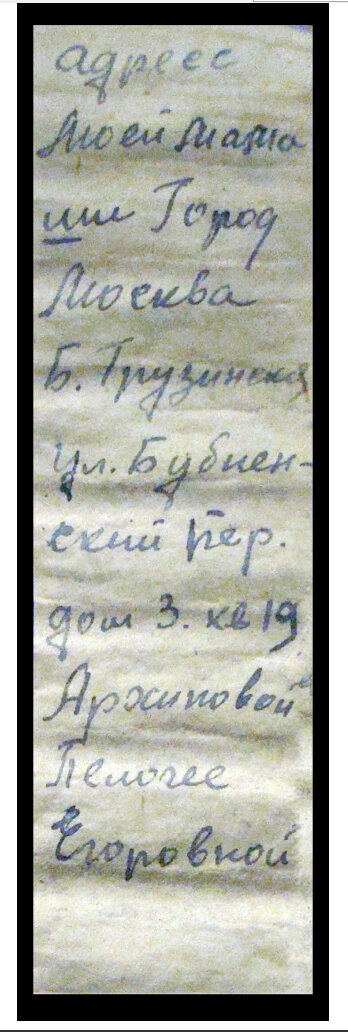 адресс
Моей Мама
ши Город
Москва
Б. Грузинская
ул. Бубнен-
ский пер.
дом 3. кв 19
Архиповой
Пелагее
Егоровной